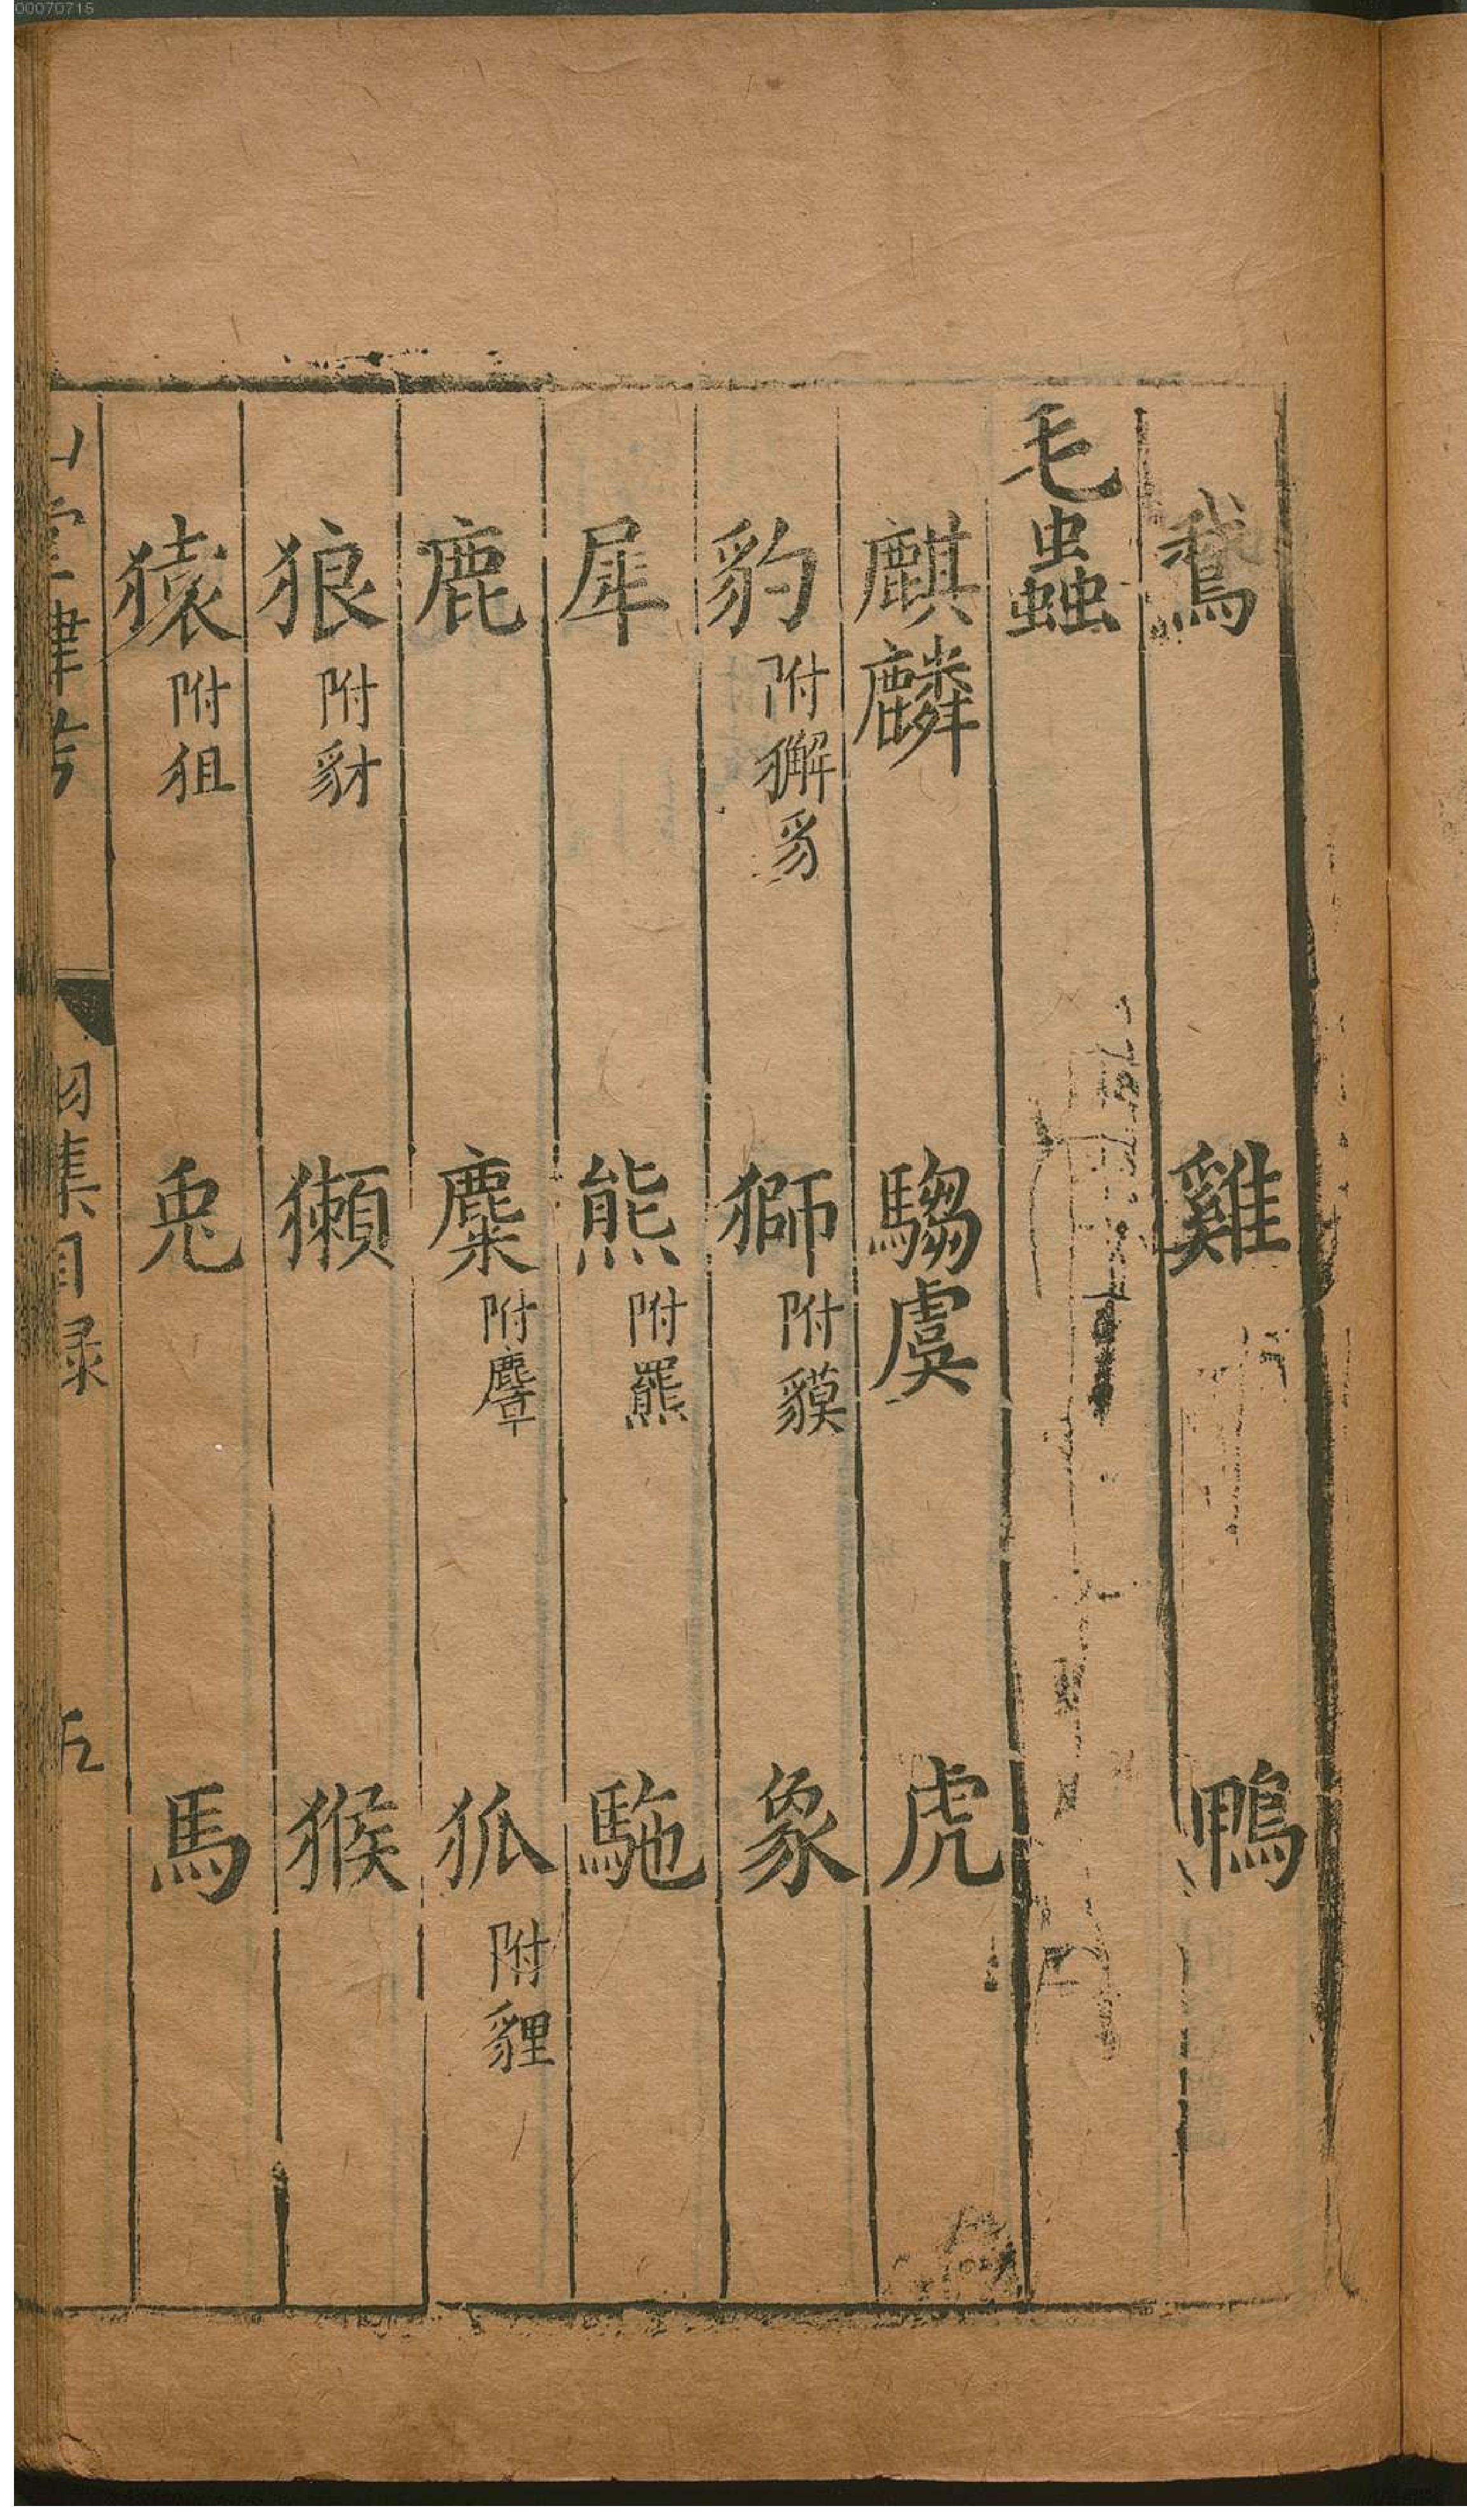 鵞 雞 鴨
毛蟲
麒麟 騶虞 虎
豹 附獬豸 獅 附貘 象
犀 熊 附羆 駞
鹿 麋 附麞 狐 附貍
狼 附豺 獺 猴
猿 附狙 兎 馬
山堂肆考 羽集目录 五
00070715